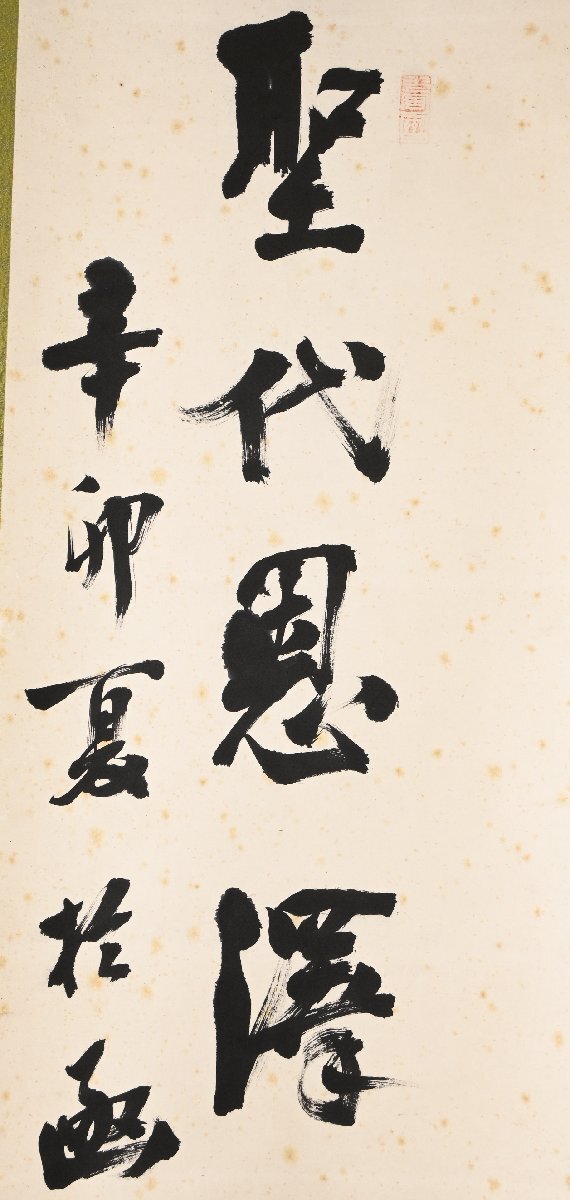 聖代恩澤
辛卯夏於函